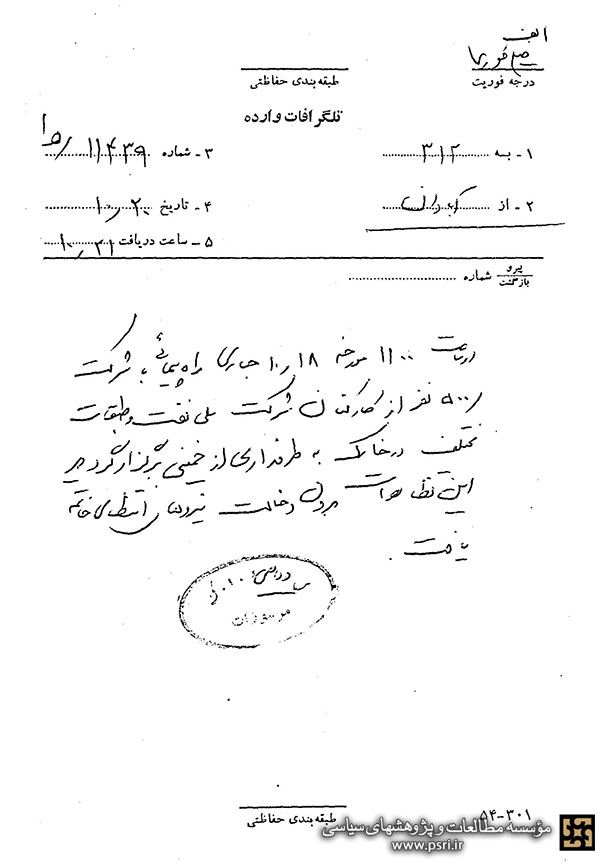 الف
خیلی فوری
درجه فوریت
طبقه بندی حفاظتی
تلگرافات وارده
۱ - به ۳۱۲
۳ - شماره ۱۱۴۳۹
۲ - از آبادان
۴ - تاریخ ۱۰٫۲۰
۵ - ساعت دریافت ۱۰٫۲۱
پیرو
بازگشت
شماره
در ساعت ۱۱۰۰ مورخه ۱۰٫۱۸ جاری راه پیمائی با شرکت
۵۰۰ نفر از کارکنان شرکت ملی نفت و طبقات
مختلف در خارک به طرفداری از خمینی برگزار گردید
این تظاهرات بدون دخالت نیروهای انتظامی خاتمه
یافت.
طبقه بندی حفاظتی
۵۴-۳۰۱
مؤسسه مطالعات و پژوهشهای سیاسی
www.psri.ir